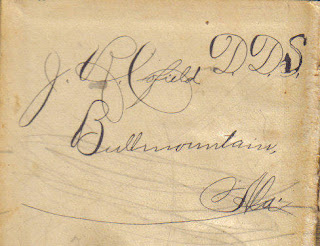 J. R. Cofield D.D.S.
Bullmountain,
Ala.